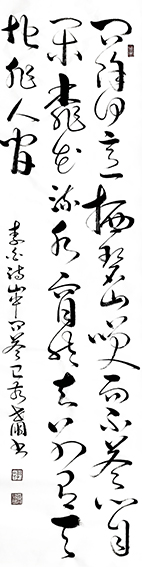 问余何意栖碧山笑而不答心自
闲桃花流水窅然去别有天
地非人间
李白诗山中问答己亥书